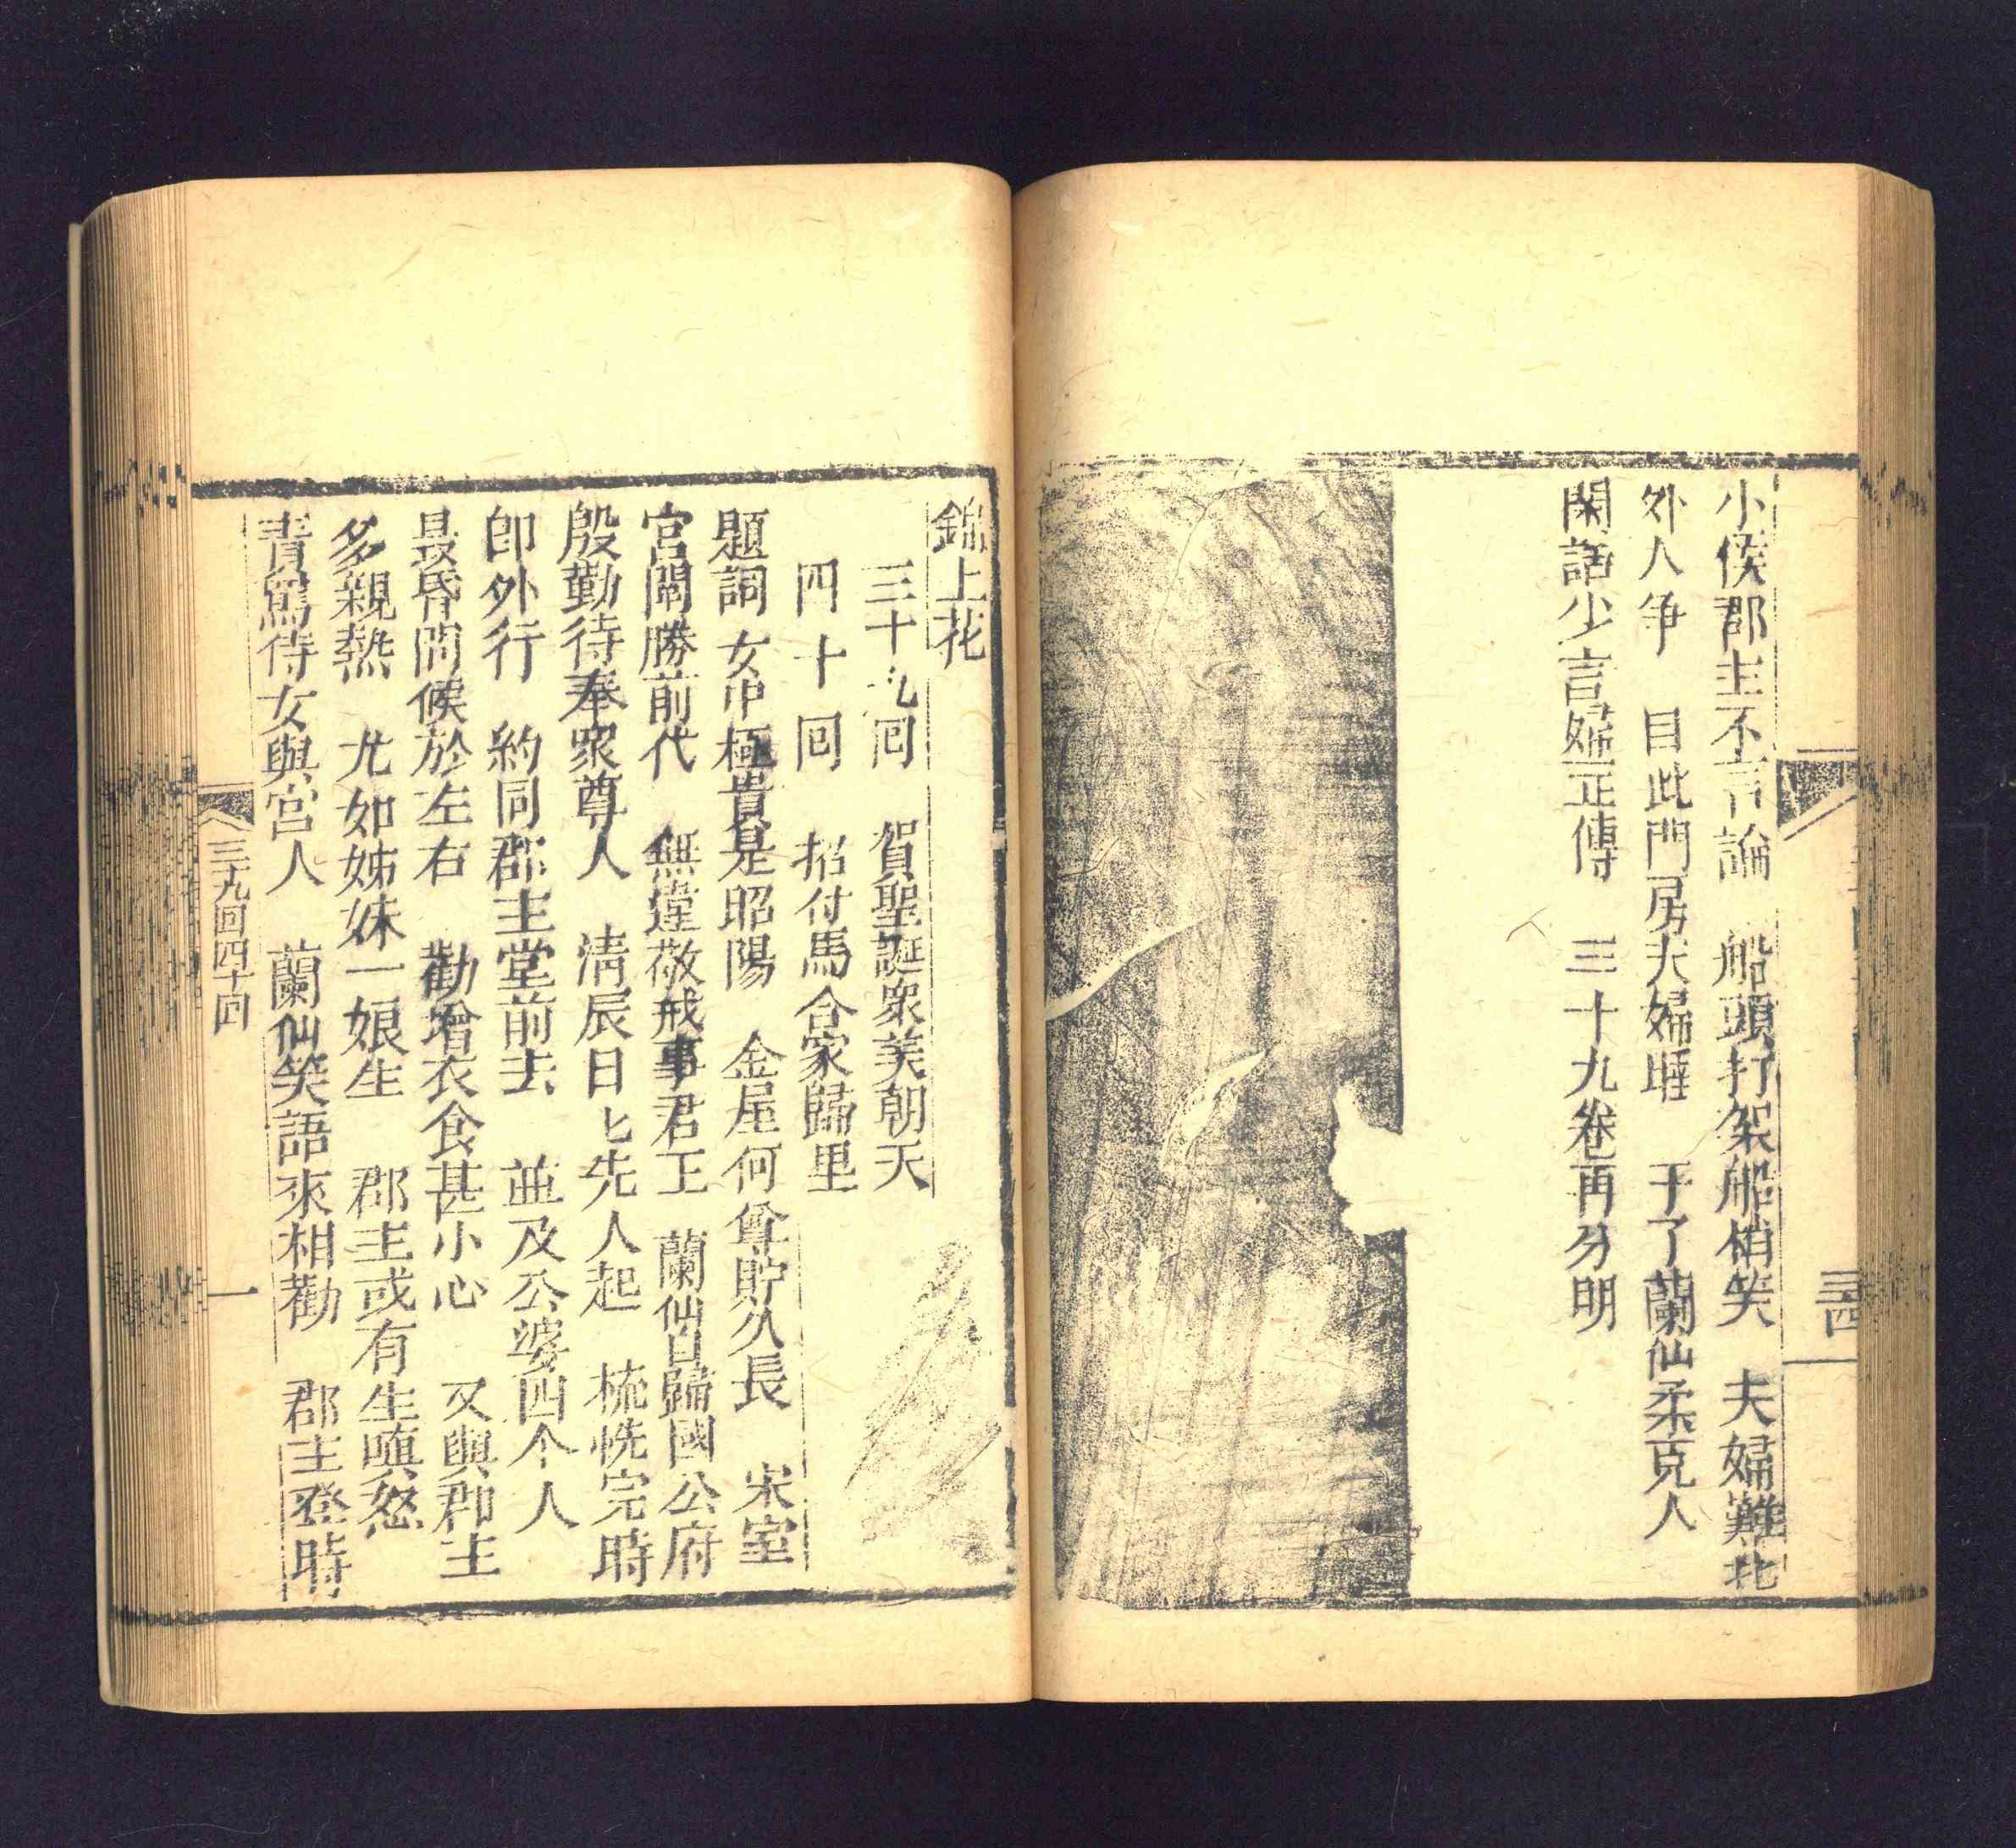 小侯郡主不言論　船頭打架船梢笑　夫婦難北
外人争　目此門房夫婦睡　于了蘭仙柔克人
閑話少言婦正傳　三十九卷再分明
錦上花
三十九回　賀聖誕衆美朝天
四十回　招付馬合家歸里
題詞　女中極貴是昭陽　金屋何曾貯久長　宋室
宮闈勝前代　無違敬戒事君王　蘭仙自歸國公府
殷勤待奉衆尊人　清辰日匕先人起　梳洗完時
卽外行　約同郡主堂前去　並及公婆四个人
晨昏問候於左右　勸增衣食甚小心　又與郡主
多親熱　尤如姊妹一娘生　郡主或有生嗔怒
青鸞侍女與宮人　蘭仙笑語來相勸　郡主登時
三九回四十回
一